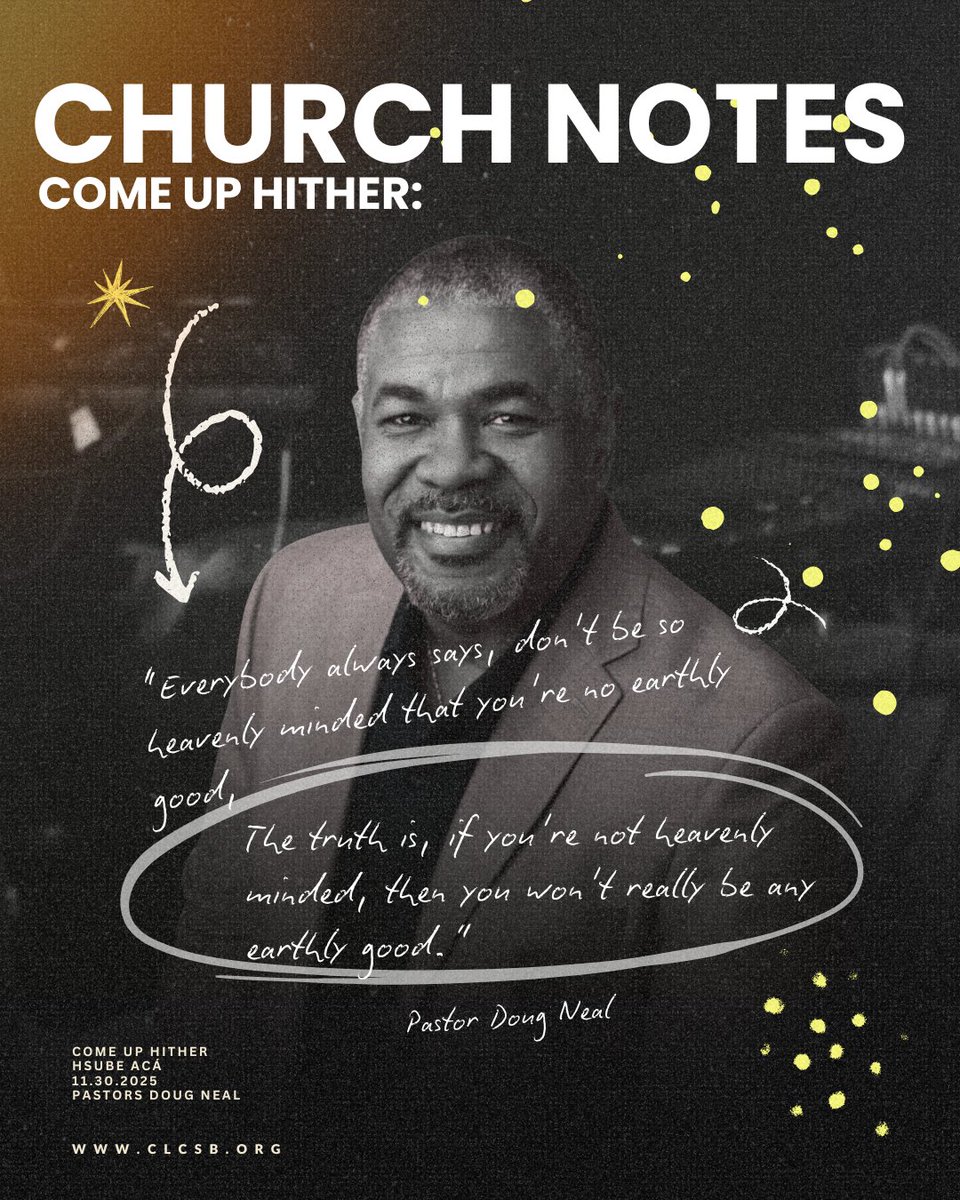 CHURCH NOTES
COME UP HITHER:
"Everybody always says, don't be so
heavenly minded that you're no earthly
good,
The truth is, if you're not heavenly
minded, then you won't really be any
earthly good."
Pastor Doug Neal
COME UP HITHER
HSUBE ACÁ
11.30.2025
PASTORS DOUG NEAL
WWW.CLCSB.ORG